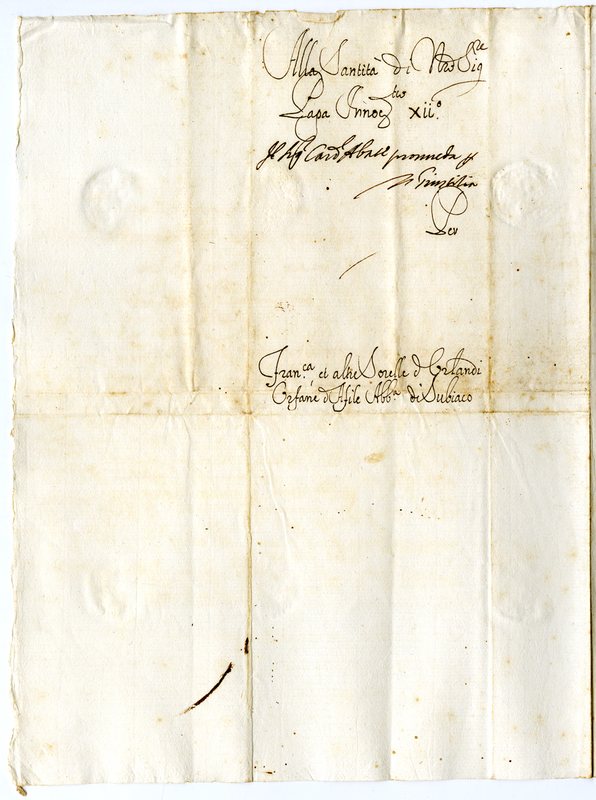 Alla Santità di Nro Sigre
Papa Innoctio xiio.
Il Sigr Card Abate proueda
Giustitia
Per
Fran.ca et altre Sorelle d Orlandi
Orfane d'Afile Abb.a di Subiaco